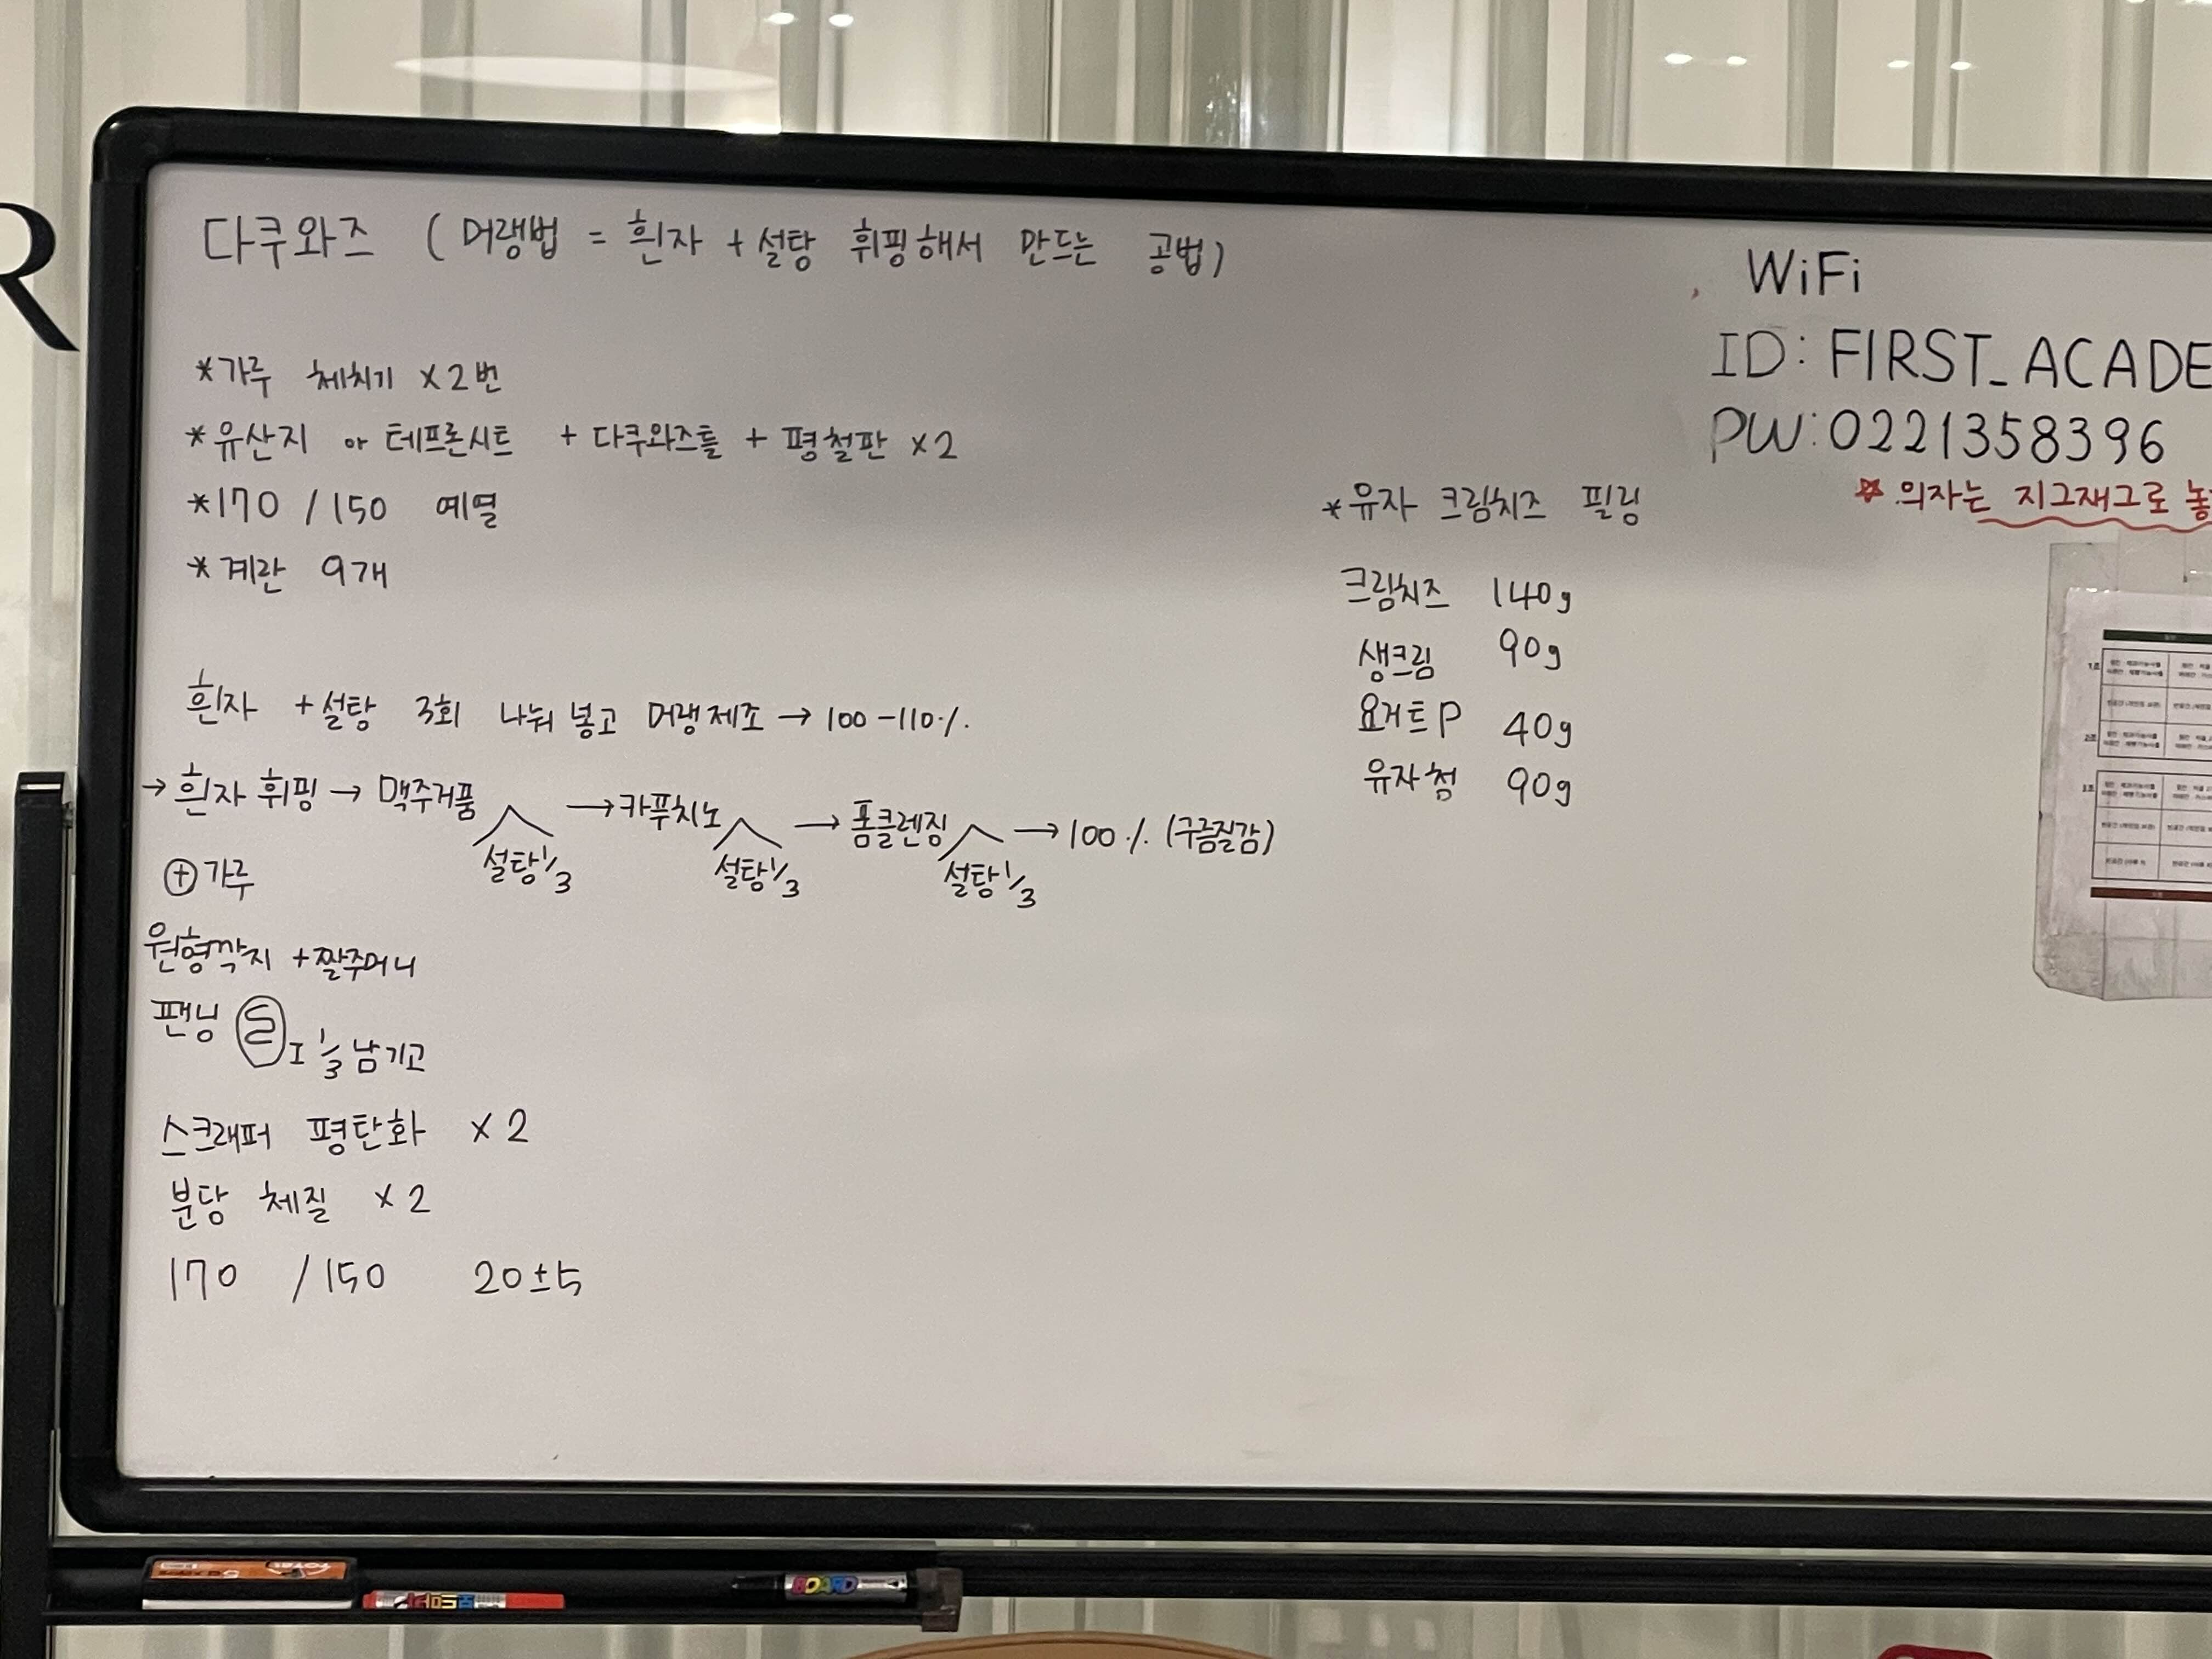 R
다쿠와즈 (머랭법 = 흰자 + 설탕 휘핑해서 만드는 공법)
*가루 체치기 x2번
*유산지 or 테프론시트 + 다쿠와즈틀 + 평철판 x2
*170 / 150 예열
*계란 9개
흰자 + 설탕 3회 나눠 넣고 머랭제조 → 100-110%
→ 흰자 휘핑 → 맥주거품 → 카푸치노 → 폼클렌징 → 100% (구름질감)
설탕 1/3 설탕 1/3 설탕 1/3
⊕ 가루
원형깍지 + 짤주머니
팬닝 I 1/3 남기고
스크래퍼 평탄화 x 2
분당 체질 x 2
170 / 150 20±5
*유자 크림치즈 필링
크림치즈 140g
생크림 90g
요거트P 40g
유자청 90g
WiFi
ID: FIRST_ACADE
PW: 0221358396
☆ 의자는 지그재그로 놓
BOARD